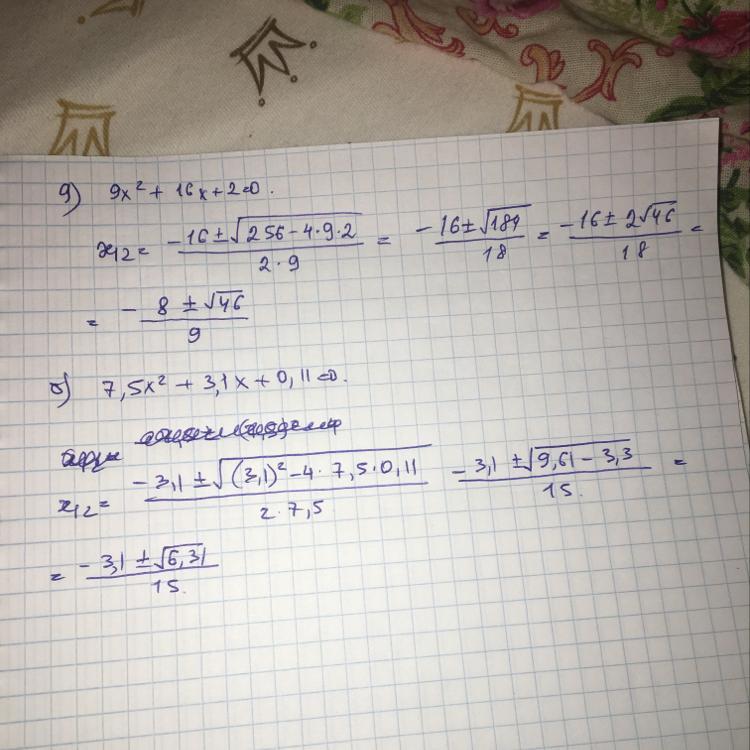 g) 9x² + 16x + 2 = 0.
x₁₂ = (-16 ± √(256 - 4·9·2)) / (2·9) = (-16 ± √184) / 18 = (-16 ± 2√46) / 18 =
= (-8 ± √46) / 9
б) 7,5x² + 3,1x + 0,11 = 0.
x₁₂ = (-3,1 ± √((3,1)² - 4·7,5·0,11)) / (2·7,5) (-3,1 ± √(9,61 - 3,3)) / 15. =
= (-3,1 ± √6,31) / 15.